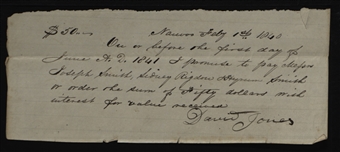 $50.00 Nauvoo Feby 1st 1840
On or before the first day of
June A.D. 1841 I promise to pay
Joseph Smith, Sidney Rigdon Hyrum Smith
or order the sum of Fifty dollars with
interest for value received
David Jones